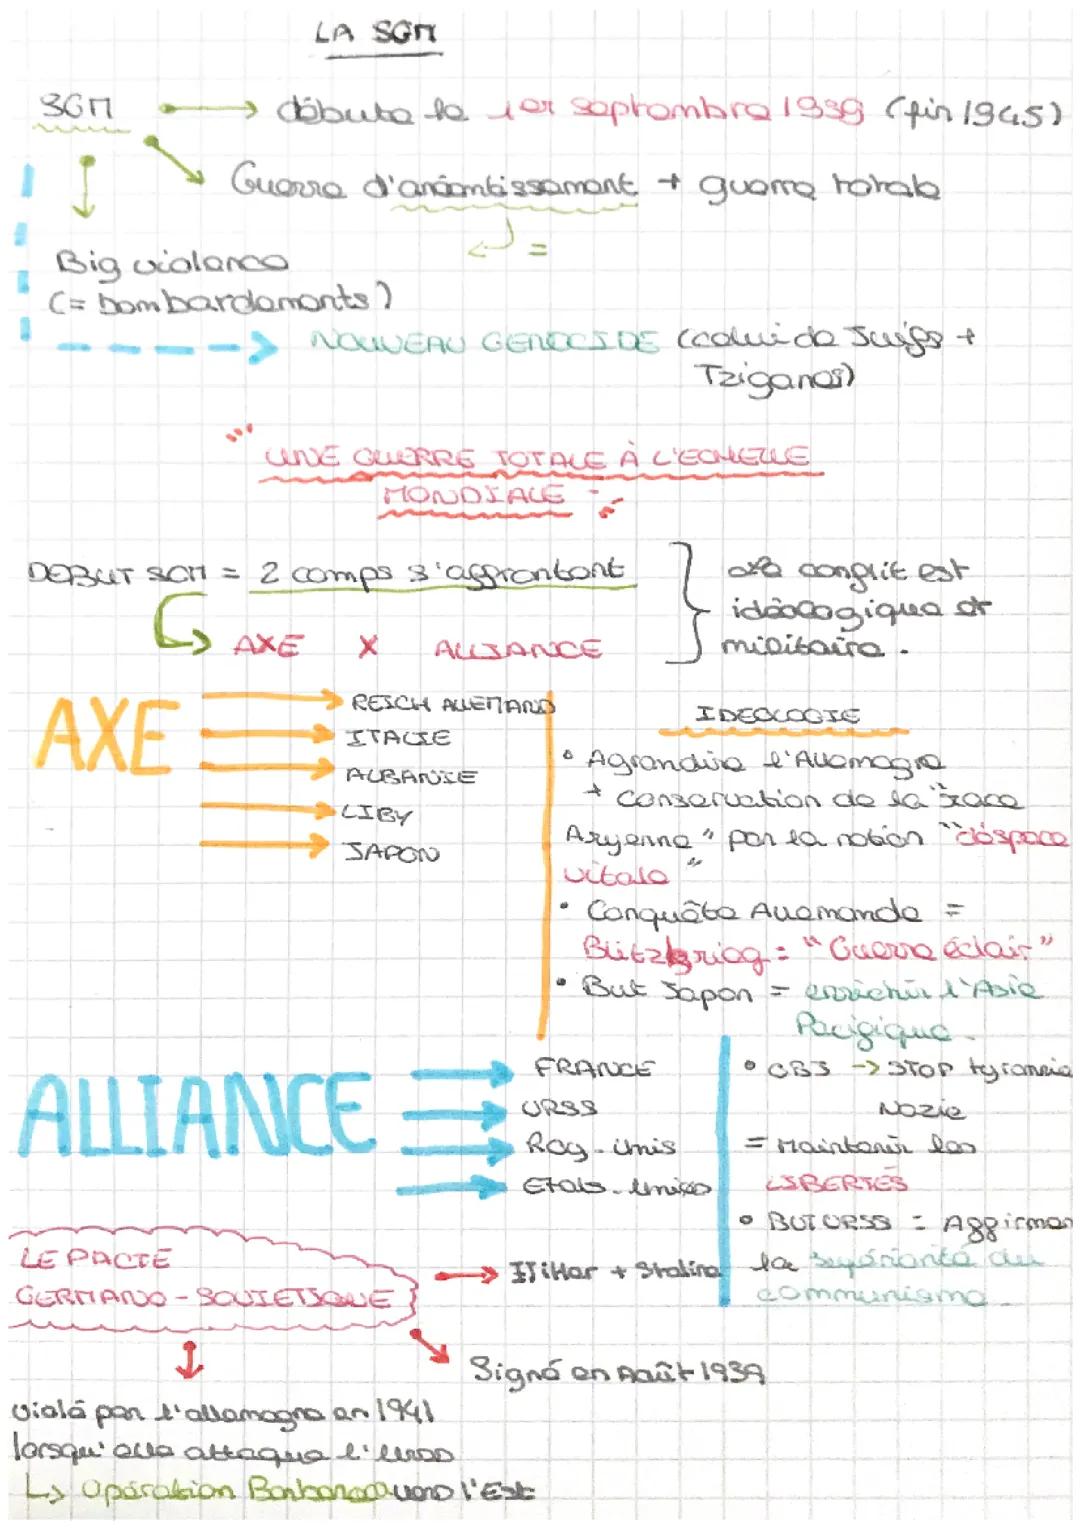 LA SGM
SGM → débute le 1er septembre 1939 (fin 1945)
Guerre d'anéantissement + guerre totale
=
Big violence
(= bombardements)
NOUVEAU GENOCIDE (celui de Juifs +
Tziganes)
UNE GUERRE TOTALE À L'ECHELLE
MONDIALE
DEBUT SGM = 2 camps s'affrontent
AXE X ALLIANCE
Le conflit est
idéologique et
militaire.
AXE
REICH ALLEMAND
ITALIE
ALBANIE
LIBY
JAPON
IDEOLOGIE
• Agrandire l'Allemagne
+ Conservation de la "race
Aryenne" par la notion "d'éspace
vitale"
• Conquête Allemande =
Blitzkrieg = "Guerre éclair"
• But Japon = enrichir l'Asie
Pacifique.
ALLIANCE
FRANCE
URSS
Roy-Unis
Etats-Unis
• OBJ -> STOP tyrannie
Nazie
= Maintenir les
LIBERTES
• BUT URSS = Affirmer
la supériorité du
communisme.
LE PACTE
GERMANO-SOVIETIQUE
→ Hitler + Staline
Signé en Août 1939
violé par l'allemagne en 1941
lorsqu'elle attaque l'urss
↳ Opération Barbarossa vers l'Est